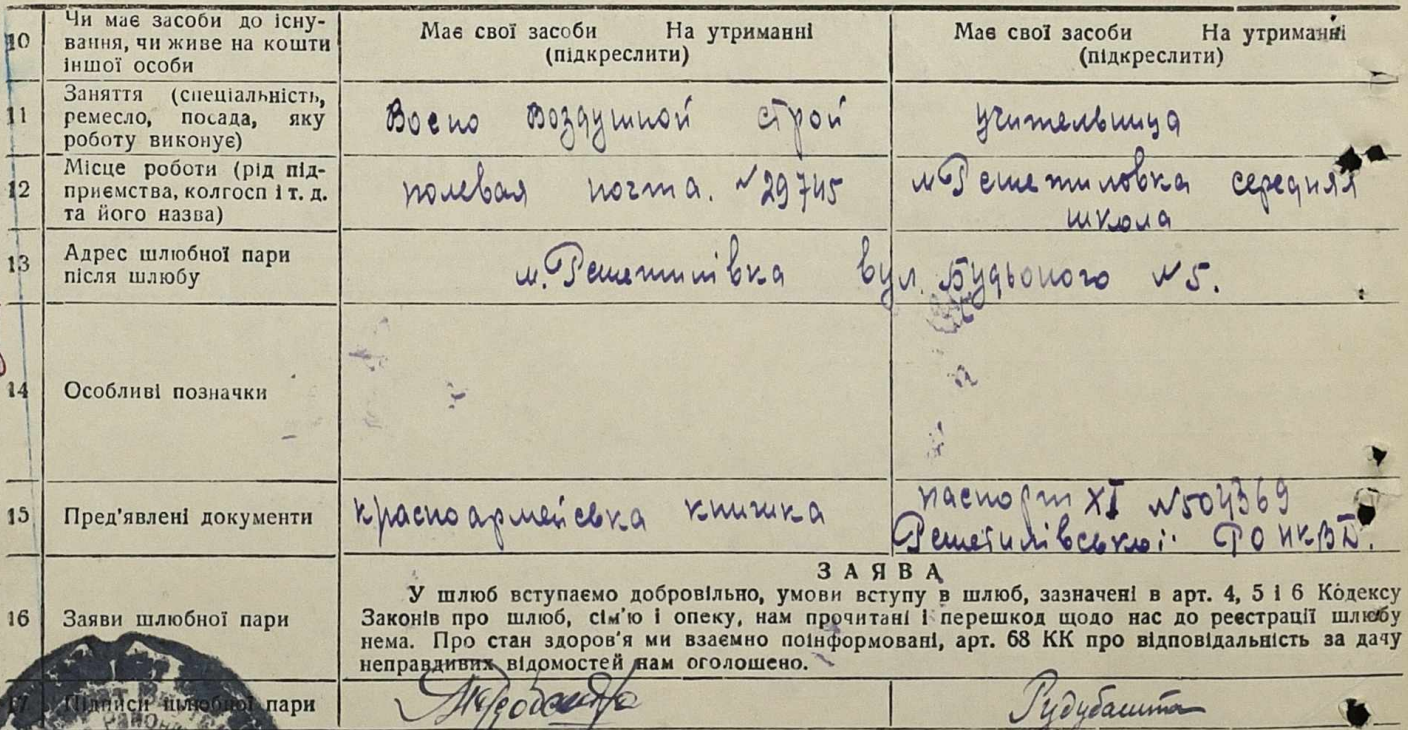 10 Чи має засоби до існу-
вання, чи живе на кошти
іншої особи
Має свої засоби На утриманні
(підкреслити)
Має свої засоби На утриманні
(підкреслити)
11 Заняття (спеціальність,
ремесло, посада, яку
роботу виконує)
Воєно Воздушной строй
учительница
12 Місце роботи (рід під-
приємства, колгосп і т. д.
та його назва)
полевая почта. №29745
м Решетиловка середняя
школа
13 Адрес шлюбної пари
після шлюбу
м. Решетилівка вул. Будьоного №5.
14 Особливі позначки
15 Пред'явлені документи
красноармейська книжка
паспорт XI №504369
Решетилівської РО НКВД.
16 Заяви шлюбної пари
ЗАЯВА
У шлюб вступаємо добровільно, умови вступу в шлюб, зазначені в арт. 4, 5 і 6 Кодексу
Законів про шлюб, сім'ю і опеку, нам прочитані і перешкод щодо нас до реєстрації шлюбу
нема. Про стан здоров'я ми взаємно поінформовані, арт. 68 КК про відповідальність за дачу
неправдивих відомостей нам оголошено.
17 Підписи шлюбної пари
Рудубашта